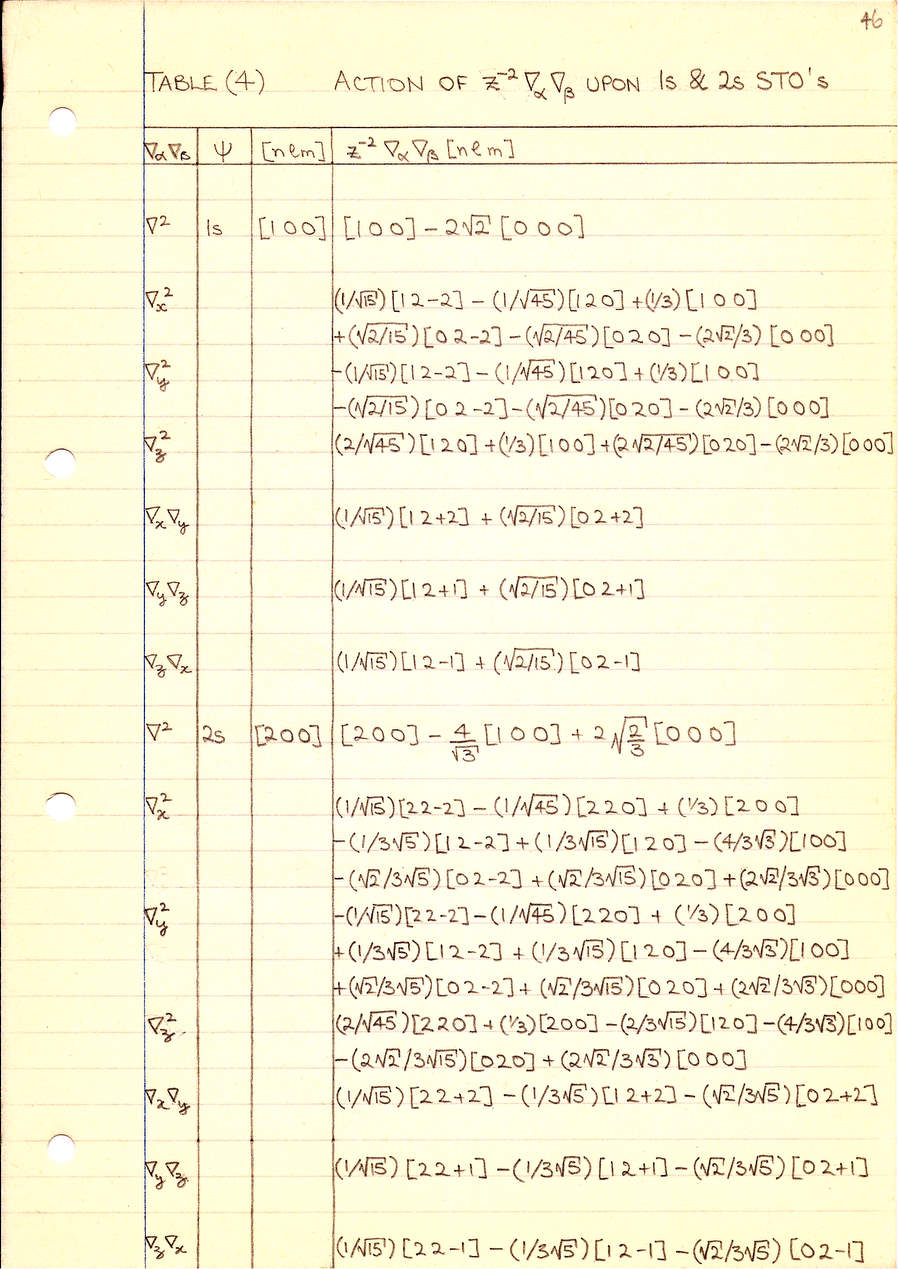 46
TABLE (4) ACTION OF z⁻² ∇α ∇β UPON 1s & 2s STO's
∇α ∇β ψ [n l m] z⁻² ∇α ∇β [n l m]
∇² 1s [1 0 0] [1 0 0] − 2√2 [0 0 0]
∇x² (1/√15)[1 2 −2] − (1/√45)[1 2 0] + (1/3)[1 0 0]
+(√2/15)[0 2 −2] − (√2/45)[0 2 0] − (2√2/3) [0 0 0]
∇y² −(1/√15)[1 2 −2] − (1/√45)[1 2 0] + (1/3)[1 0 0]
−(√2/15)[0 2 −2] − (√2/45)[0 2 0] − (2√2/3) [0 0 0]
∇z² (2/√45)[1 2 0] + (1/3)[1 0 0] + (2√2/45)[0 2 0] − (2√2/3)[0 0 0]
∇x ∇y (1/√15)[1 2 +2] + (√2/15)[0 2 +2]
∇y ∇z (1/√15)[1 2 +1] + (√2/15)[0 2 +1]
∇z ∇x (1/√15)[1 2 −1] + (√2/15)[0 2 −1]
∇² 2s [2 0 0] [2 0 0] − 4/√3 [1 0 0] + 2√(2/3) [0 0 0]
∇x² (1/√15)[2 2 −2] − (1/√45)[2 2 0] + (1/3)[2 0 0]
−(1/3√5)[1 2 −2] + (1/3√15)[1 2 0] − (4/3√3)[1 0 0]
−(√2/3√5)[0 2 −2] + (√2/3√15)[0 2 0] + (2√2/3√3)[0 0 0]
∇y² −(1/√15)[2 2 −2] − (1/√45)[2 2 0] + (1/3)[2 0 0]
+(1/3√5)[1 2 −2] + (1/3√15)[1 2 0] − (4/3√3)[1 0 0]
+(√2/3√5)[0 2 −2] + (√2/3√15)[0 2 0] + (2√2/3√3)[0 0 0]
∇z² (2/√45)[2 2 0] + (1/3)[2 0 0] − (2/3√15)[1 2 0] − (4/3√3)[1 0 0]
−(2√2/3√15)[0 2 0] + (2√2/3√3)[0 0 0]
∇x ∇y (1/√15)[2 2 +2] − (1/3√5)[1 2 +2] − (√2/3√5)[0 2 +2]
∇y ∇z (1/√15)[2 2 +1] − (1/3√5)[1 2 +1] − (√2/3√5)[0 2 +1]
∇z ∇x (1/√15)[2 2 −1] − (1/3√5)[1 2 −1] − (√2/3√5)[0 2 −1]